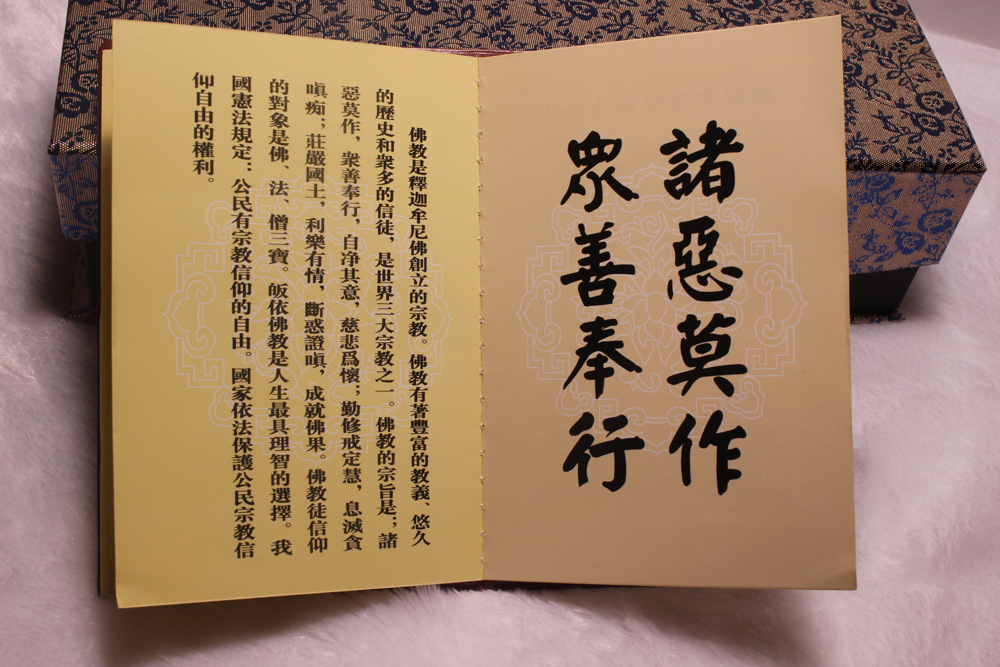 諸惡莫作
眾善奉行
佛教是釋迦牟尼佛創立的宗教。佛教有著豐富的教義、悠久
的歷史和衆多的信徒，是世界三大宗教之一。佛教的宗旨是；諸
惡莫作，衆善奉行，自净其意，慈悲爲懷；勤修戒定慧，息滅貪
嗔痴；莊嚴國土，利樂有情，斷惑證嗔，成就佛果。佛教徒信仰
的對象是佛、法、僧三寶。皈依佛教是人生最具理智的選擇。我
國憲法規定：公民有宗教信仰的自由。國家依法保護公民宗教信
仰自由的權利。